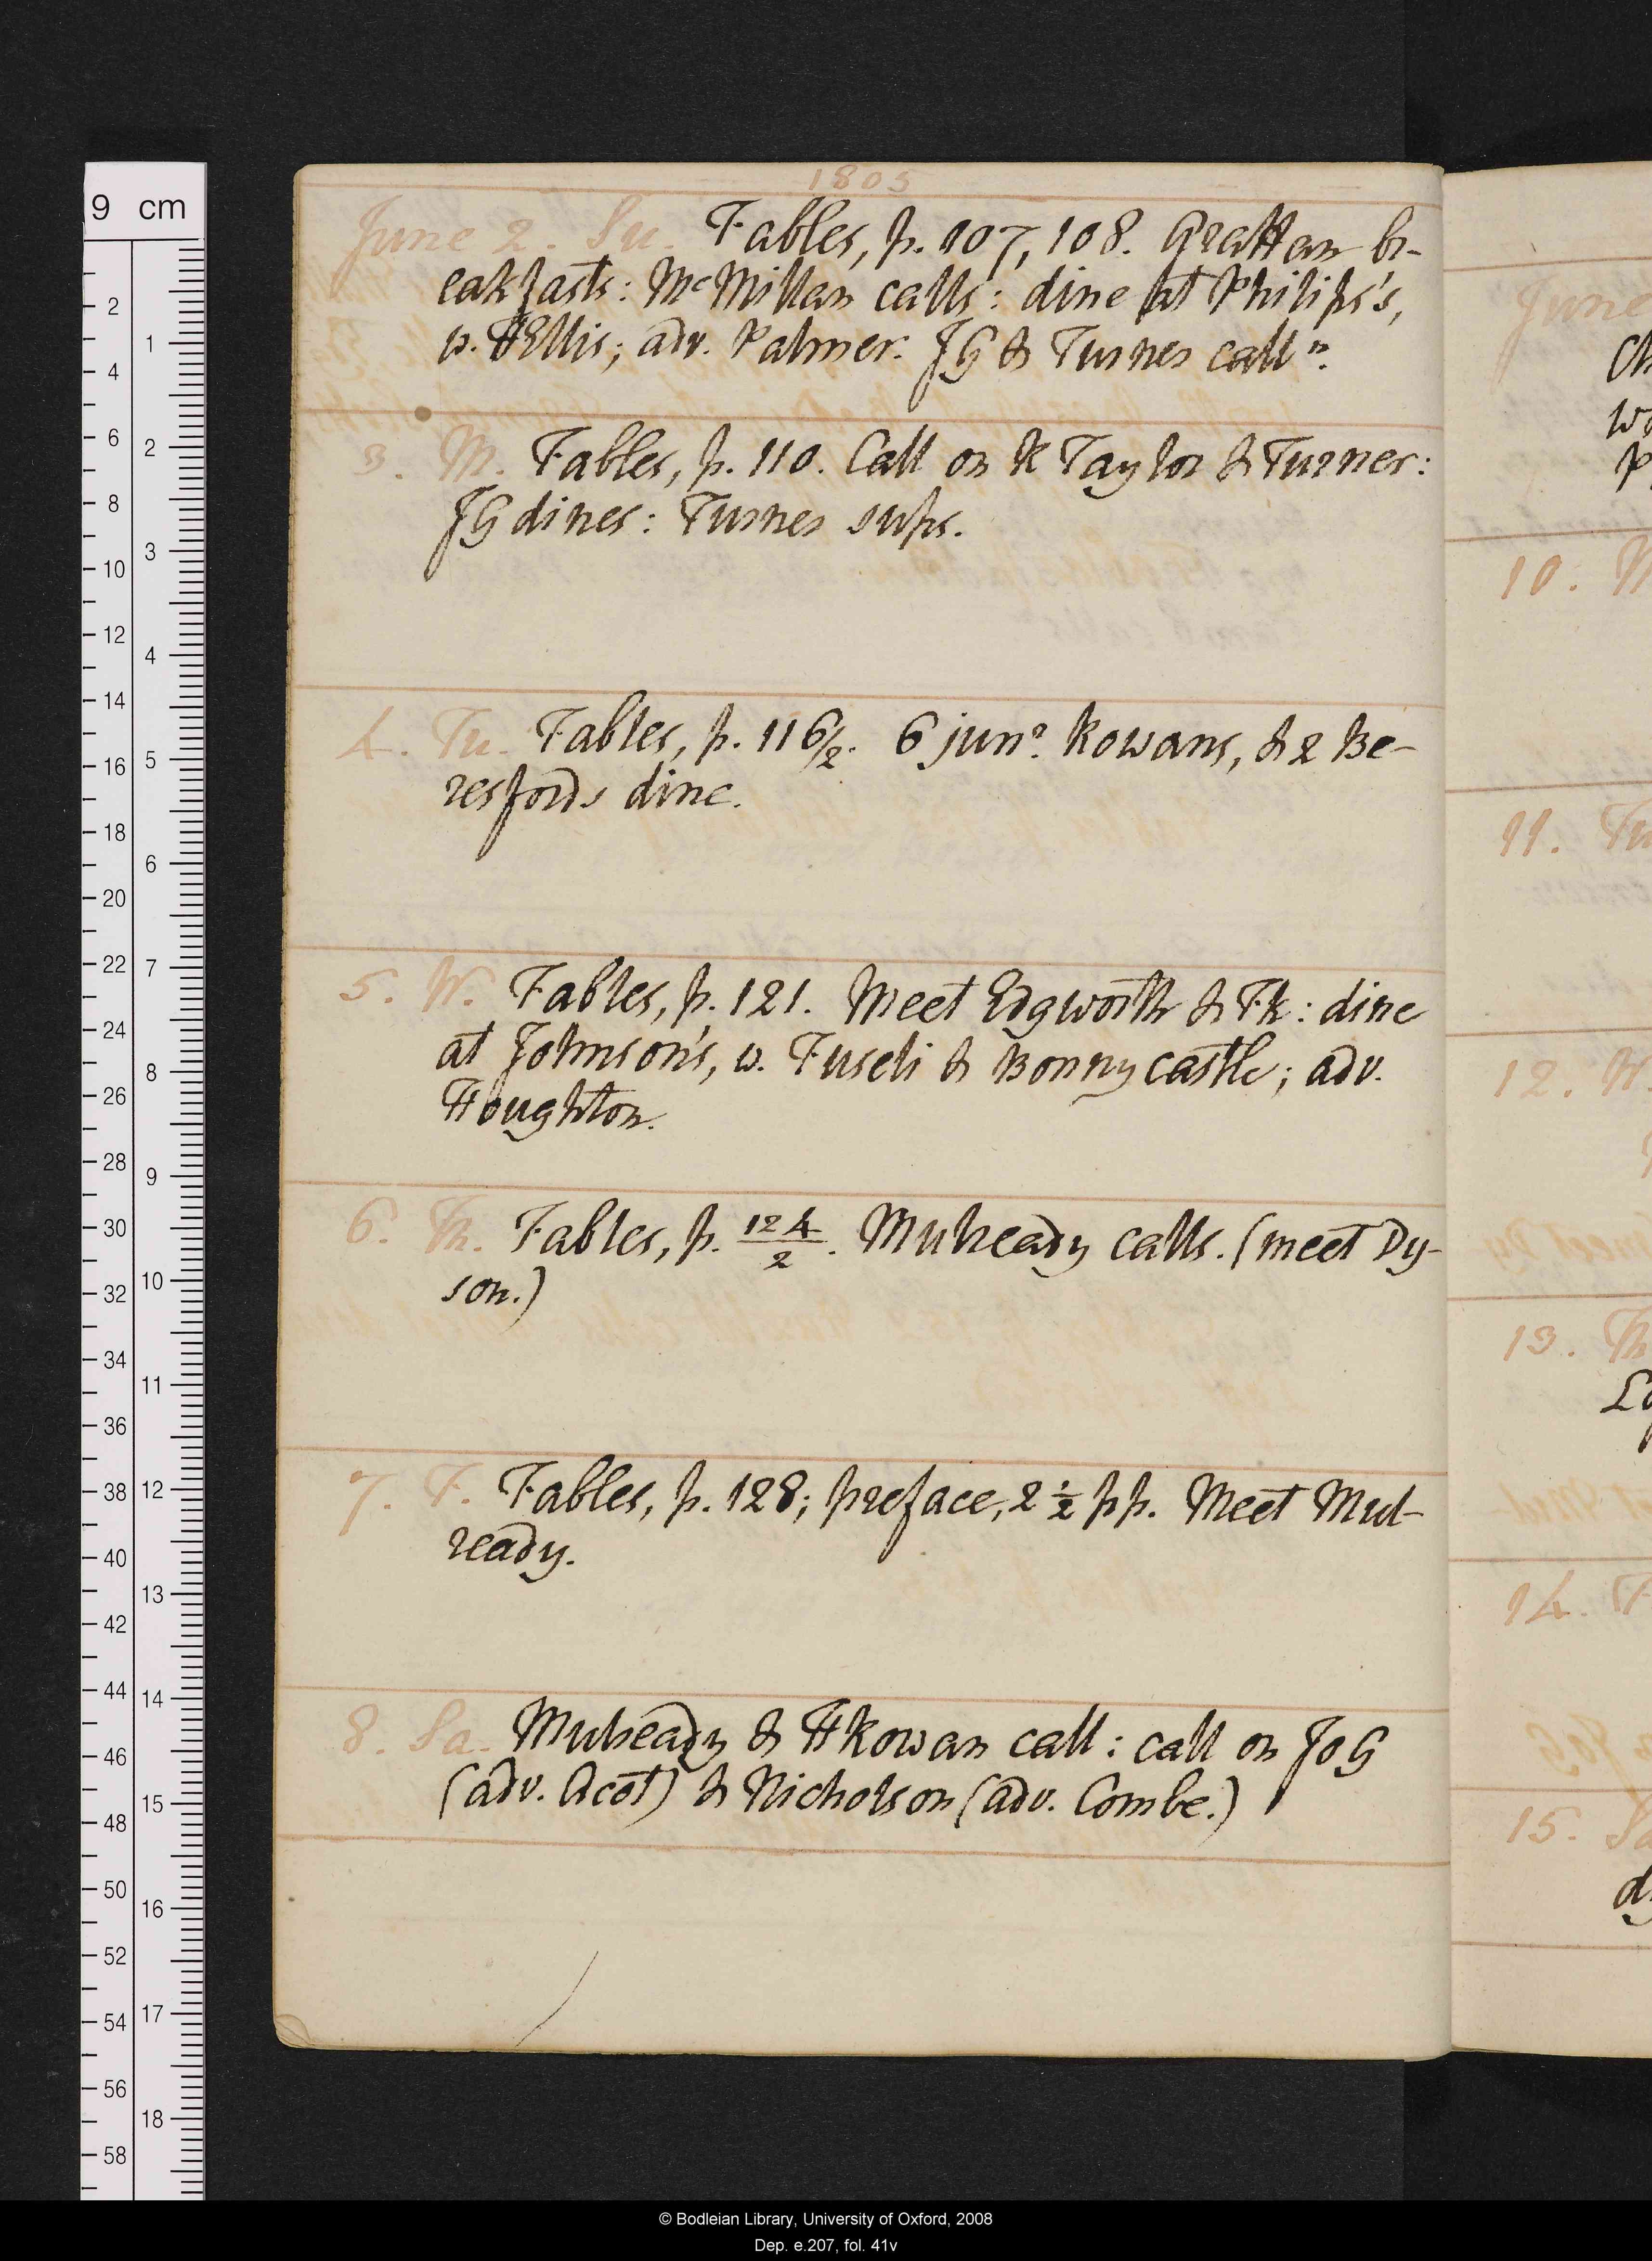 1805
June 2. Su. Fables, p. 107, 108. Grattan br-
eakfasts: McMillan calls: dine at Philips's,
w. HEllis; adv. Palmer. JG & Turner calln.
3. M. Fables, p. 110. Call on R Taylor & Turner:
JG dines: Turner sups.
4. Tu. Fables, p. 116/2. 6 junr. Rowans, & 2 Be-
resfords dine.
5. W. Fables, p. 121. Meet Edgworth & Fk: dine
at Johnson's, w. Fuseli & Bonnycastle; adv.
Houghton.
6. Th. Fables, p. 124/2. Mulready calls. (meet Dy-
son.)
7. F. Fables, p. 128; preface, 2 1/2 pp. Meet Mul-
ready.
8. Sa. Mulready & HRowan call: call on JoG
(adv. Acot) & Nicholson (adv. Combe.)
June
Ch
10. M
11. Tu
12. W.
13. Th
14. F
15. Sa
9 cm
2 4 6 8 10 12 14 16 18 20 22 24 26 28 30 32 34 36 38 40 42 44 46 48 50 52 54 56 58
1 2 3 4 5 6 7 8 9 10 11 12 13 14 15 16 17 18
© Bodleian Library, University of Oxford, 2008
Dep. e.207, fol. 41v